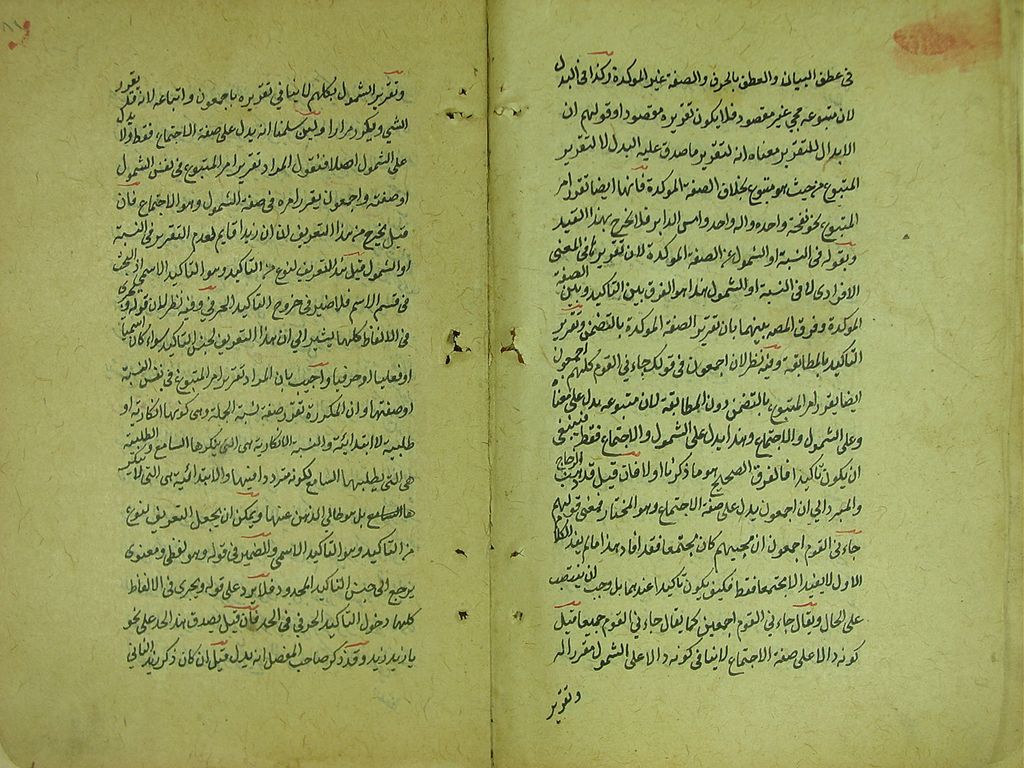 في عطف البيان والعطف بالحرف والصفة غير الموكدة وكذا في البدل
لان متبوعه مجي غير مقصود فلا يكون تقريره مقصودا وقولهم ان
الابدال للتقرير معناه انه لتقرير ما صدق عليه البدل لا لتقرير
المتبوع من حيث هو متبوع بخلاف الصفة الموكدة فانها ايضا تقرر امر
المتبوع نحو نفخة واحدة واله واحد وامس الدابر فلا يخرج بهذا القيد
وبقوله في النسبة او الشمول عن الصفة الموكدة لان تقرير ثاني المعنى
الافرادي لا في النسبة او الشمول هذا هو الفرق بين التاكيد وبين الصفة
الموكدة وفرق المص بينهما بان تقرير الصفة الموكدة بالتضمن وتقرير
التاكيد بالمطابقة وفيه نظر لان اجمعون في قولك جاءني القوم كلهم اجمعون
ايضا يقرر امر المتبوع بالتضمن دون المطابقة لان متبوعه يدل على معناه
وعلى الشمول والاجتماع وهذا يدل على الشمول والاجتماع فقط فينبغي
ان يكون تاكيدا فالفرق الصحيح هو ما ذكرنا اولا فان قيل قد ذهب الزجاج
والمبرد الي ان اجمعون يدل على صفة الاجتماع وهو المختار فمعنى قولهم
جاءني القوم اجمعون ان مجيهم كان مجتمعا فقد افاد هذا ما لم يفد الكلام
الاول لا يفيد الا مجتمعا فقط فكيف يكون تاكيدا عندهما بل وجب ان ينتصب
على الحال ويقال جاءني القوم اجمعين كما يقال جاءني القوم جميعا قيل
كونه دالا على صفة الاجتماع لا ينافي كونه دالا على الشمول مقررا له
وتقرير
وتقرير الشمول بكلهم لا ينافي تقريره باجمعون واتباعه لان قد يقرر
الشي ويكرر مرارا ولين سلمنا انه يدل على صفة الاجتماع فقط ولا يدل
على الشمول اصلا فنقول المراد تقرير امر المتبوع في نفس الشمول
او صفته واجمعون يقرر امره في صفة الشمول وهو الاجتماع فان
قيل يخرج من هذا التعريف ان ان زيدا قايم لعدم التقرير في النسبة
او الشمول قيل هذا التعريف لنوع من التاكيد وهو التاكيد الاسمي اذ البحث
في قسم الاسم فلا ضير في خروج التاكيد الحرفي وفيه نظر لان قوله ويجري
في الالفاظ كلها يشير الي ان هذا التعريف لجنس التاكيد سواء كان اسميا
او فعليا او حرفيا واجيب بان المراد تقرير امر المتبوع في نفس النسبة
او صفتها وان المكررة تقرر صفة نسبة الجملة وهي كونها انكارية او
طلبية لا ابتدائية والنسبة الانكارية هي التي ينكرها السامع والطلبية
هي التي يطلبها السامع لكونه مترددا فيها والابتدائية هي التي لا
السامع بل هو خالي الذهن عنها ويمكن ان يجعل التعريف لنوع
من التاكيد وهو التاكيد الاسمي والضمير في قوله وهو لفظي ومعنوي
يرجع الى جنس التاكيد لا المحدود فلا يرد على قوله ويجري في الالفاظ
كلها دخول التاكيد الحرفي في الحد فان قيل يصدق هذا الحد على نحو
يا زيد زيد وقد ذكر صاحب المفصل انه بدل قيل ان كان ذكر زيد الثاني